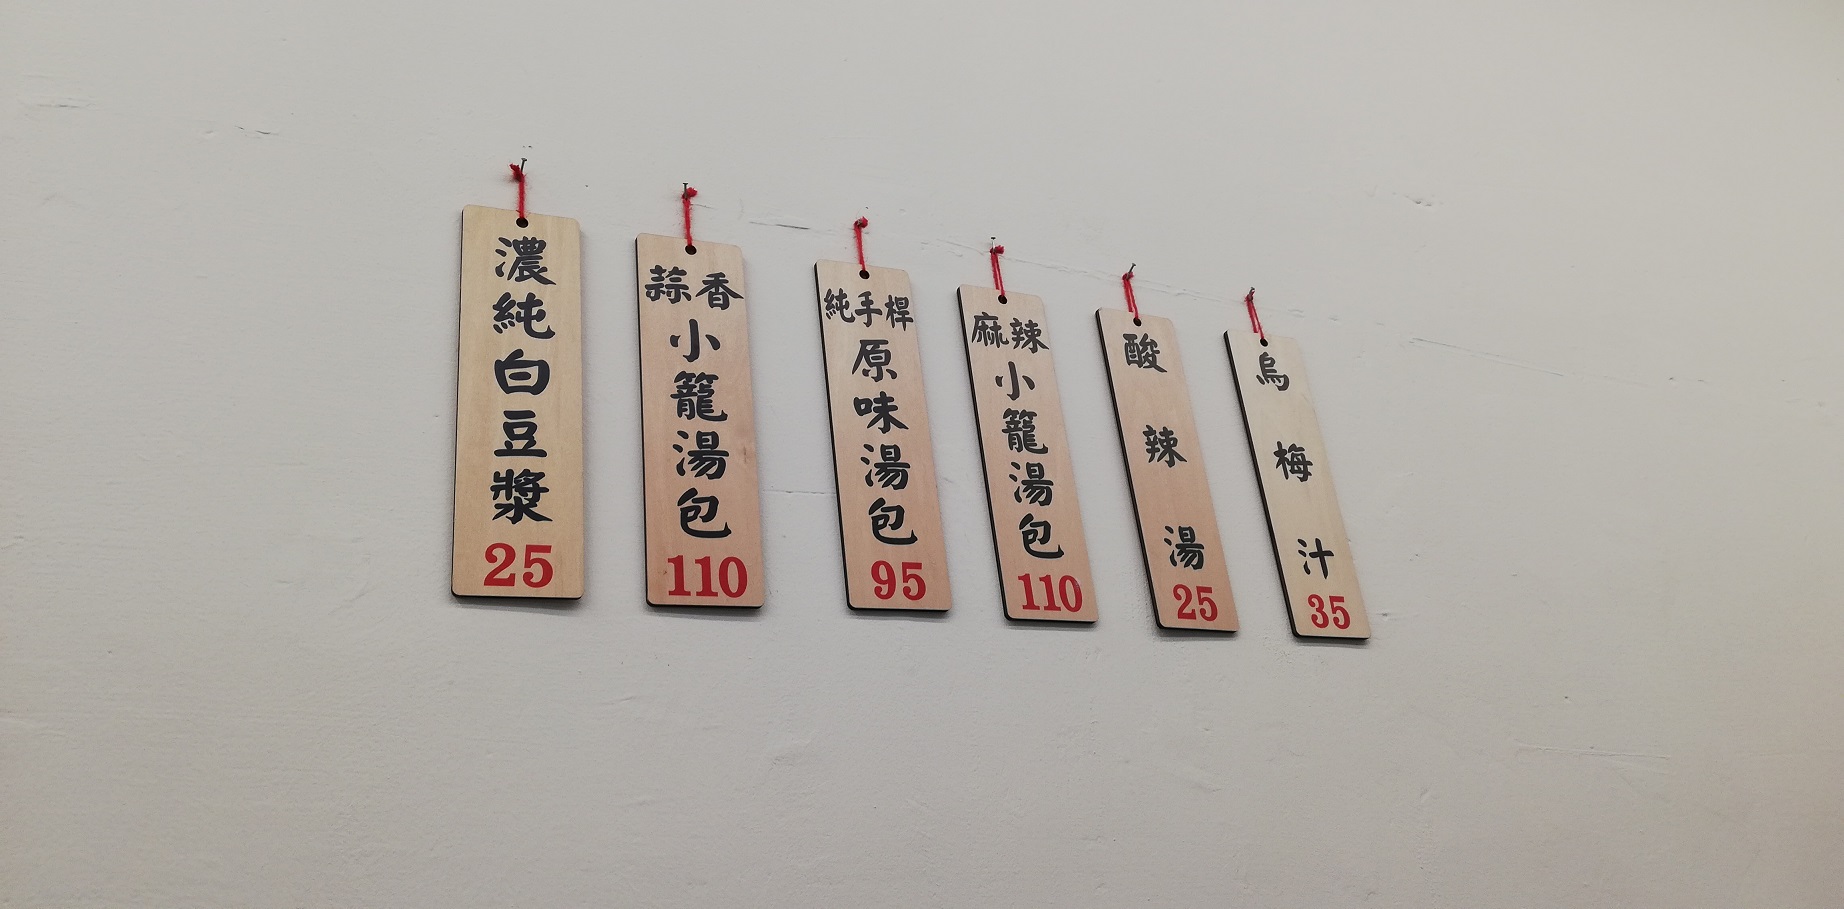 濃純白豆漿
25
蒜香
小籠湯包
110
純手桿
原味湯包
95
麻辣
小籠湯包
110
酸辣湯
25
烏梅汁
35